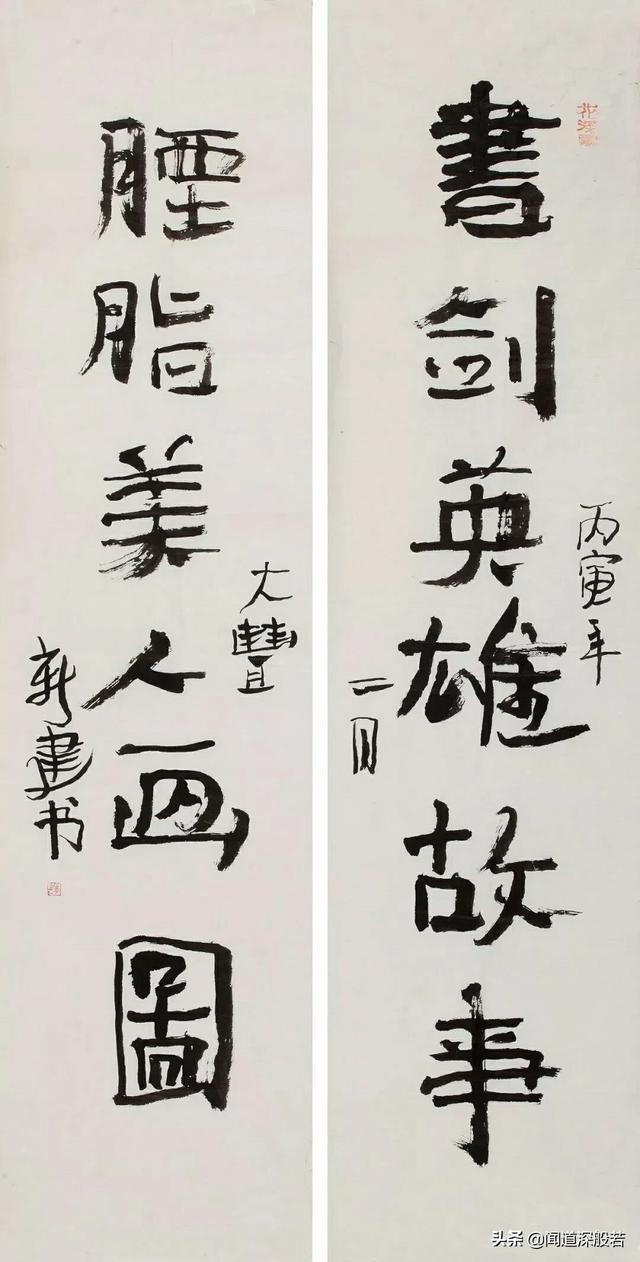 書劍英雄故事
丙寅年
二月
胭脂美人画圖
大豐
新建书
头条 @闻道深般若